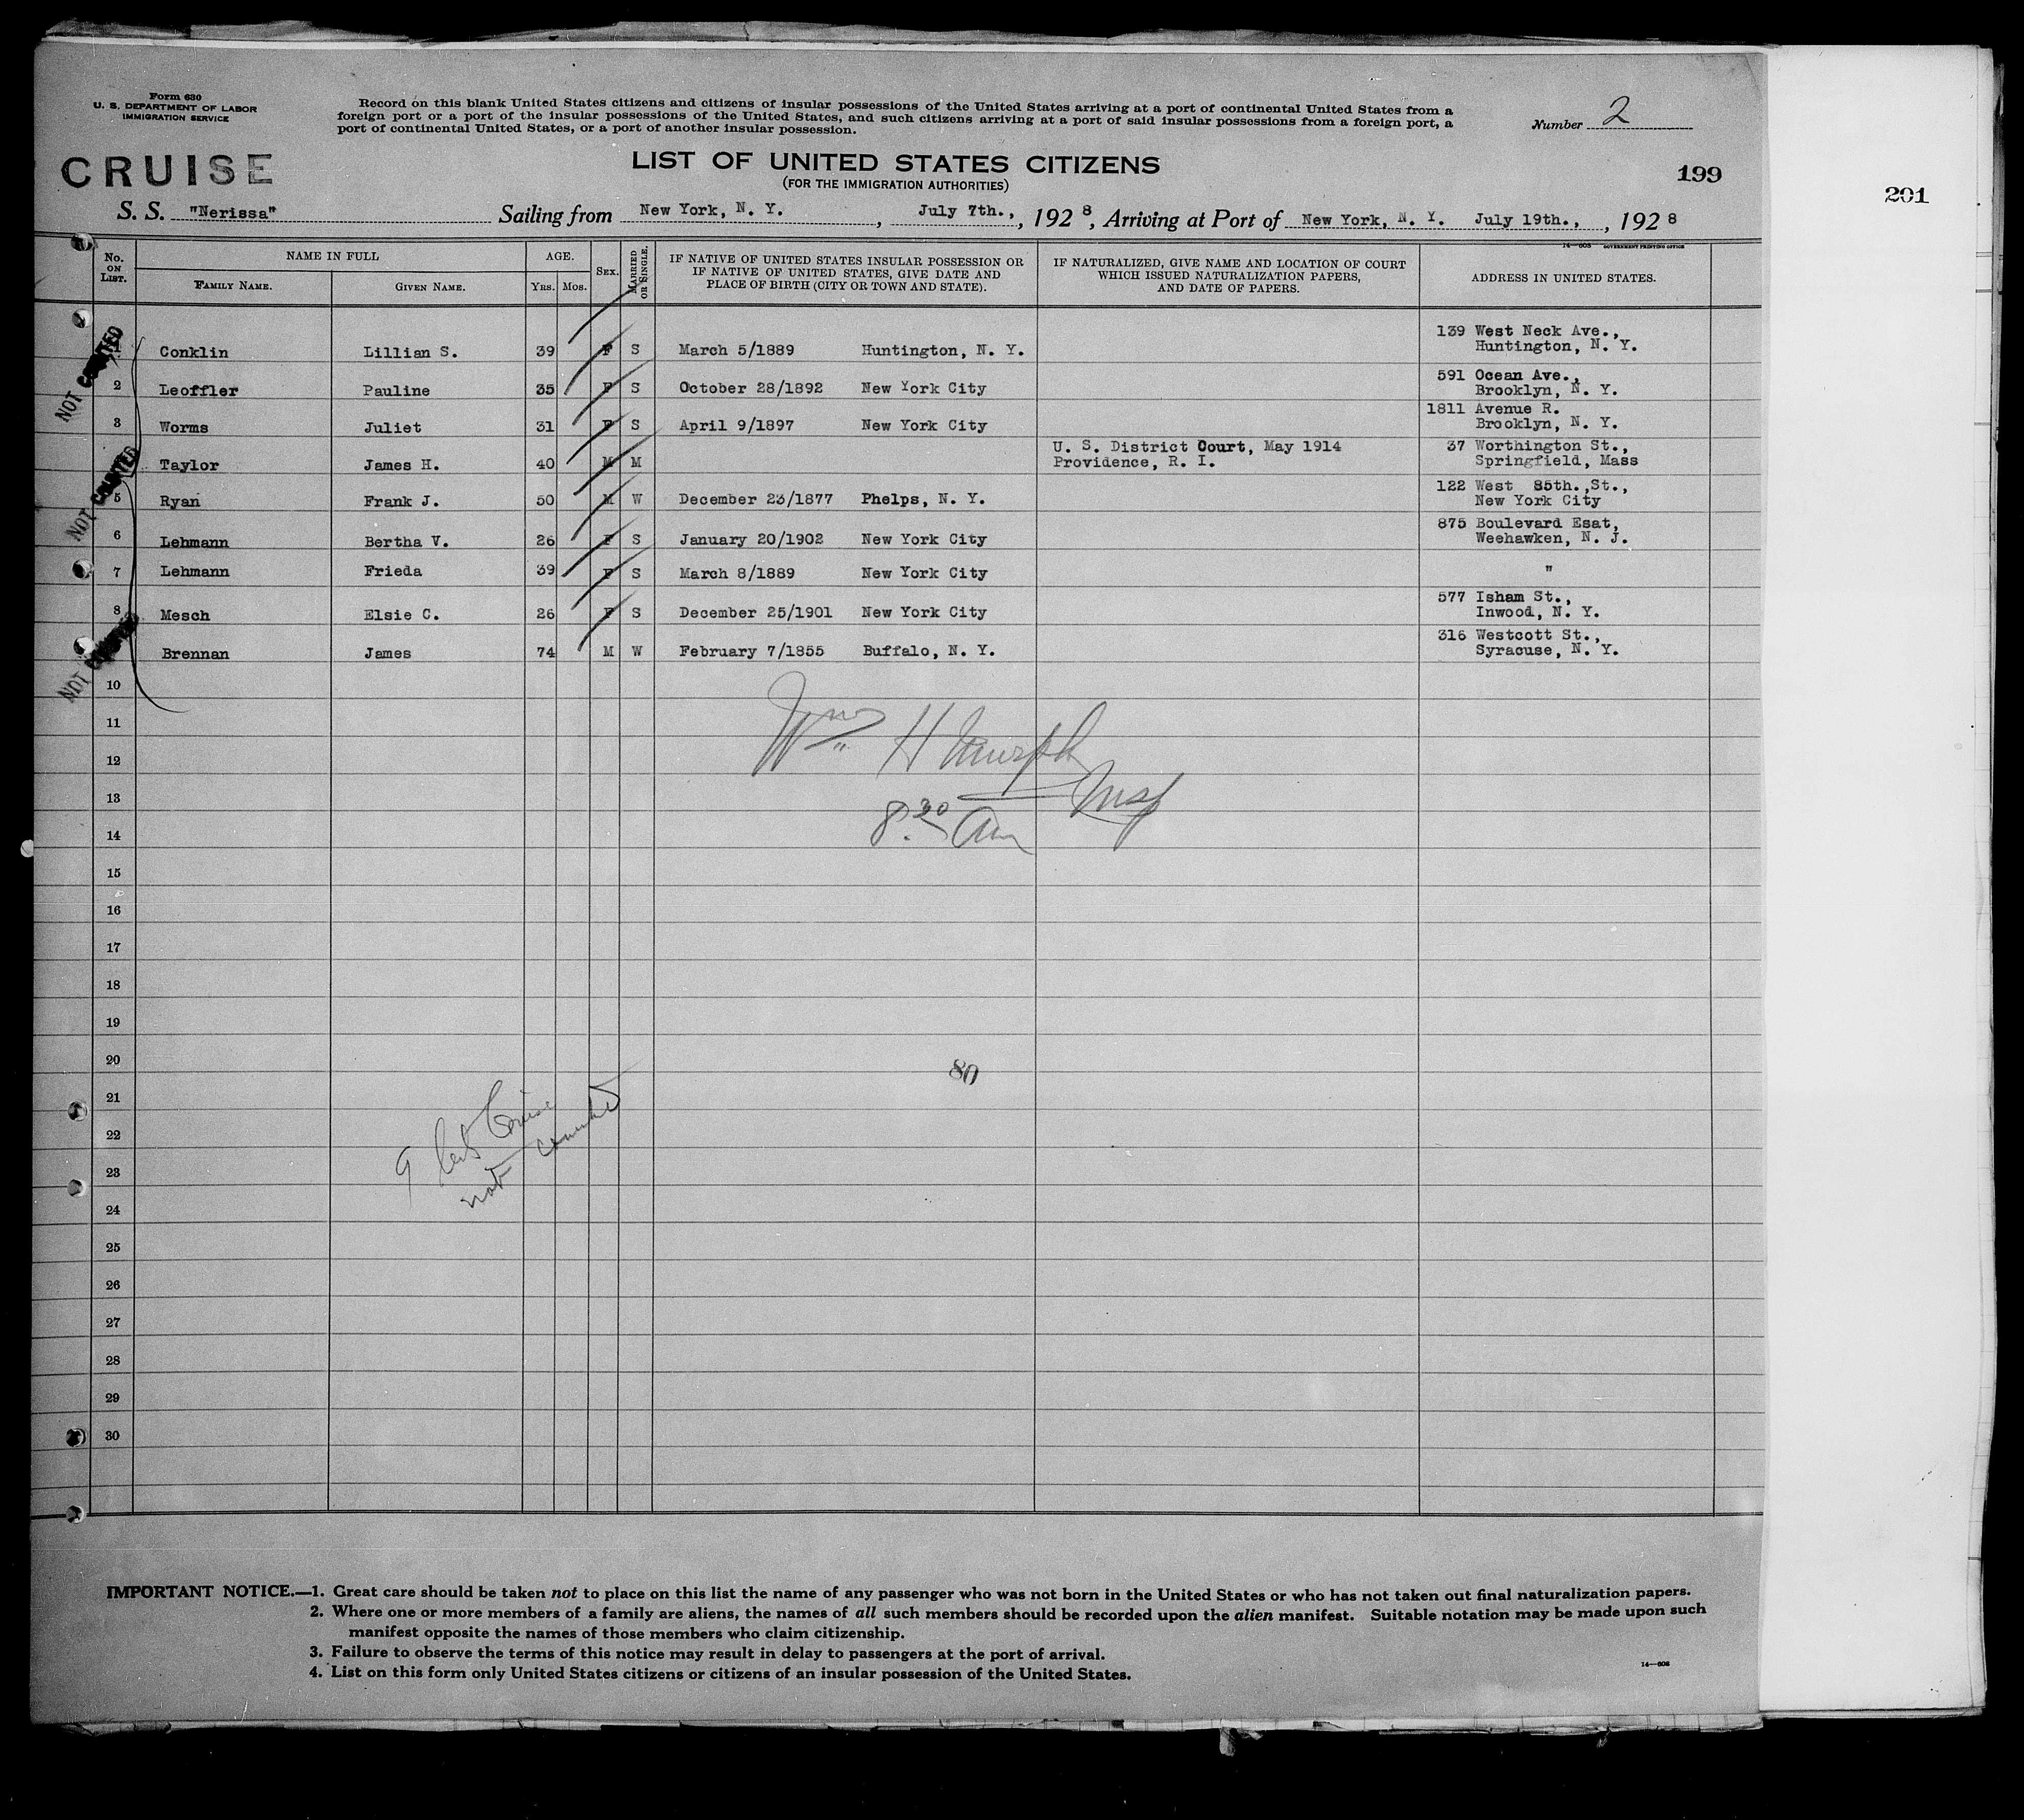 Form 630
U. S. DEPARTMENT OF LABOR
IMMIGRATION SERVICE
Record on this blank United States citizens and citizens of insular possessions of the United States arriving at a port of continental United States from a
foreign port or a port of the insular possessions of the United States, and such citizens arriving at a port of said insular possessions from a foreign port, a
port of continental United States, or a port of another insular possession.
Number 2
CRUISE
LIST OF UNITED STATES CITIZENS
(FOR THE IMMIGRATION AUTHORITIES)
199
201
S. S. "Nerissa" Sailing from New York, N. Y. , July 7th., , 1928, Arriving at Port of New York, N. Y. July 19th., , 1928
14—608 GOVERNMENT PRINTING OFFICE
No. ON LIST. NAME IN FULL AGE. SEX. MARRIED OR SINGLE. IF NATIVE OF UNITED STATES INSULAR POSSESSION OR IF NATIVE OF UNITED STATES, GIVE DATE AND PLACE OF BIRTH (CITY OR TOWN AND STATE). IF NATURALIZED, GIVE NAME AND LOCATION OF COURT WHICH ISSUED NATURALIZATION PAPERS, AND DATE OF PAPERS. ADDRESS IN UNITED STATES.
FAMILY NAME. GIVEN NAME. YRS. MOS.
NOT COUNTED
NOT COUNTED
NOT COUNTED
1 Conklin Lillian S. 39 F S March 5/1889 Huntington, N. Y. 139 West Neck Ave., Huntington, N. Y.
2 Leoffler Pauline 35 F S October 28/1892 New York City 591 Ocean Ave., Brooklyn, N. Y.
3 Worms Juliet 31 F S April 9/1897 New York City 1811 Avenue R. Brooklyn, N. Y.
Taylor James H. 40 M M U. S. District Court, May 1914 Providence, R. I. 37 Worthington St., Springfield, Mass
5 Ryan Frank J. 50 M W December 23/1877 Phelps, N. Y. 122 West 85th.,St., New York City
6 Lehmann Bertha V. 26 F S January 20/1902 New York City 875 Boulevard Esat, Weehawken, N. J.
7 Lehmann Frieda 39 F S March 8/1889 New York City "
8 Mesch Elsie C. 26 F S December 25/1901 New York City 577 Isham St., Inwood, N. Y.
Brennan James 74 M W February 7/1855 Buffalo, N. Y. 316 Westcott St., Syracuse, N. Y.
10
11
Wm H Murph
12
13
Insp
8.30 am
14
15
16
17
18
19
20
80
21
22
9 Cruise
not counted
23
24
25
26
27
28
29
30
IMPORTANT NOTICE.—1. Great care should be taken not to place on this list the name of any passenger who was not born in the United States or who has not taken out final naturalization papers.
2. Where one or more members of a family are aliens, the names of all such members should be recorded upon the alien manifest. Suitable notation may be made upon such
manifest opposite the names of those members who claim citizenship.
3. Failure to observe the terms of this notice may result in delay to passengers at the port of arrival.
4. List on this form only United States citizens or citizens of an insular possession of the United States.
14—608